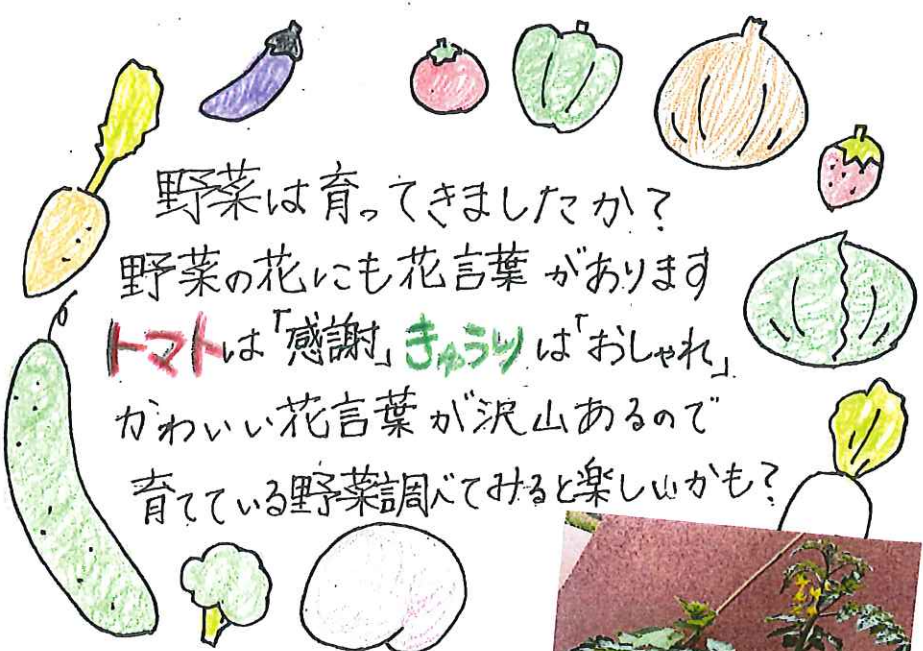 野菜は育ってきましたか？
野菜の花にも花言葉があります
トマトは「感謝」きゅうりは「おしゃれ」
かわいい花言葉が沢山あるので
育てている野菜調べてみると楽しいかも？